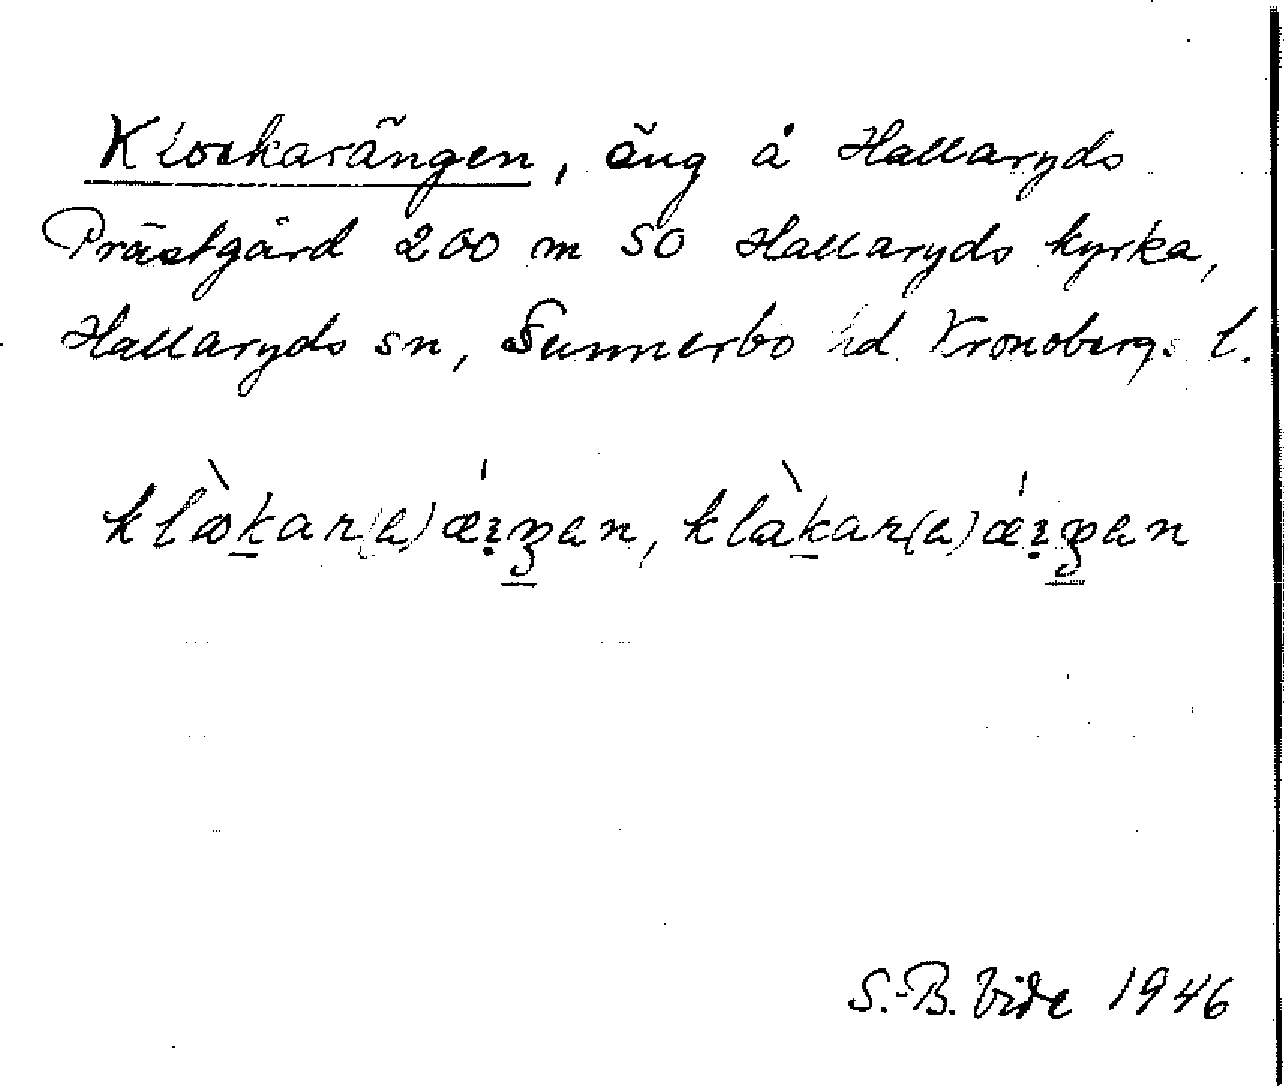 Klockarängen, äng å Hallaryds
Prästgård 200 m SO Hallaryds kyrka,
Hallaryds sn, Sunnerbo hd. Kronobergs l.
klɔ̀kar(a)ǽi̯ŋən, klàkar(a)ǽi̯ŋən
S.-B. Vide 1946